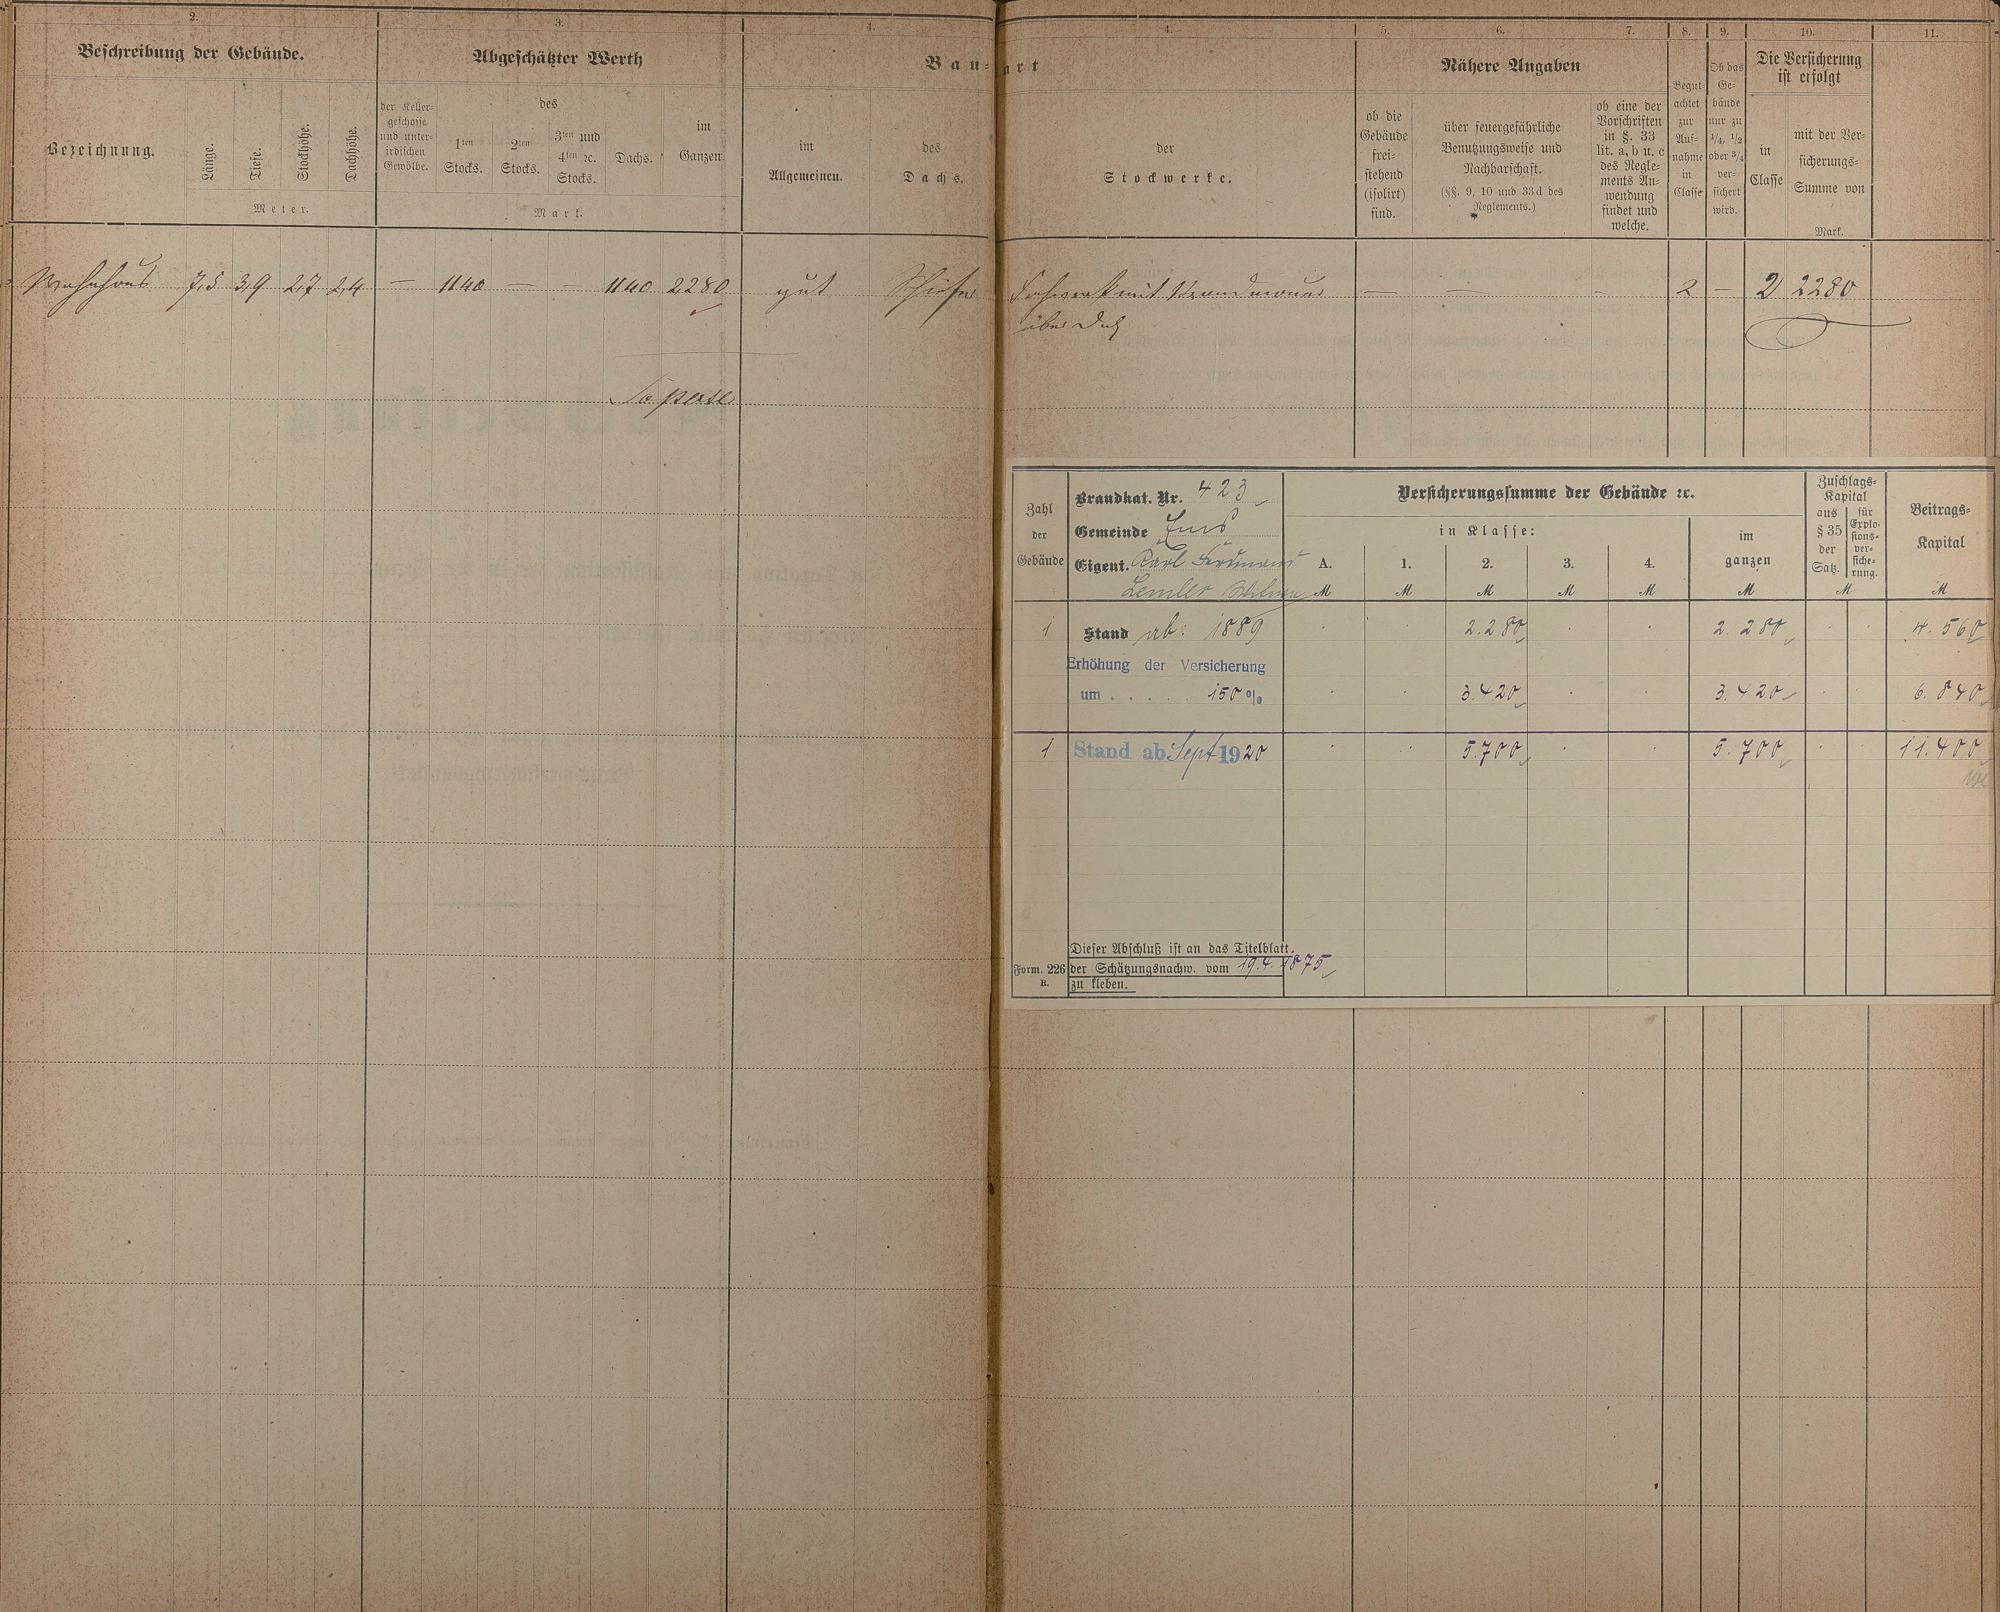 2.
3.
4.
4.
5.
6.
7.
8.
9.
10.
11.
Beschreibung der Gebäude.
Abgeschätzter Werth
Bau-
art
Nähere Angaben
Begut-
achtet
zur
Auf-
nahme
in
Classe
Ob das
Ge-
bäude
nur zu
1/4, 1/2
oder 3/4
ver-
sichert
wird.
Die Versicherung
ist erfolgt
Bezeichnung.
Länge.
Tiefe.
Stockhöhe.
Dachhöhe.
Meter.
der Keller-
geschosse
und unter-
irdischen
Gewölbe.
des
1ten
Stocks.
2ten
Stocks.
3ten und
4ten ꝛc.
Stocks.
Dachs.
im
Ganzen
Mark.
im
Allgemeinen.
des
Dachs.
der
Stockwerke.
ob die
Gebäude
frei-
stehend
(isolirt)
sind.
über feuergefährliche
Benutzungsweise und
Nachbarschaft.
(§§. 9, 10 und 33d des
Reglements.)
ob eine der
Vorschriften
in §. 33
lit. a, b u. c
des Regle-
ments An-
wendung
findet und
welche.
in
Classe
mit der Ver-
sicherungs-
Summe von
Mark.
Wohnhaus 7,5 3,9 2,7 2,4 — 1140 — — 1140 2280 gut Schiefer Fachwerk mit Brandmauer — — — 2 — 2 2280
über Dach
Zahl
der
Gebäude
Brandkat. Nr. 423
Gemeinde Ems
Eigent. Karl
Versicherungssumme der Gebäude ꝛc.
in Klasse:
A.
1.
2.
3.
4.
im
ganzen
M M M M M M M M
Zuschlags-
Kapital
aus
§ 35
der
Satz.
für
Explo-
sions-
ver-
siche-
rung.
Beitrags-
Kapital
1 Stand ab: 1889 2.280 2.280 4.560
Erhöhung der Versicherung
um . . . . . 150 % 3.420 3.420 6.840
1 Stand ab Sept 1920 5.700 5.700 11.400
Dieser Abschluß ist an das Titelblatt
Form. 226 der Schätzungsnachw. vom 19.4.1875
R. zu kleben.